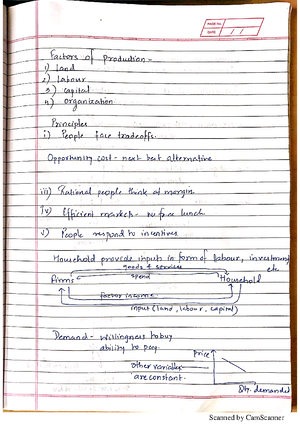 PAGE NO.
DATE / /
Factors of production -
1) Land
2) Labour
3) Capital
4) Organization
Principles
i) People face tradeoffs.
Opportunity cost - next best alternative
iii) Rational people think at margin
iv) Efficient markets - no free lunch
v) People respond to incentives
Household provide inputs in form of labour, investment etc
goods & services
spend
Firms Household
factor income
input (land, labour, capital)
Demand - willingness to buy
ability to pay
Price
other variables
are constant.
Qty. demanded
Scanned by CamScanner